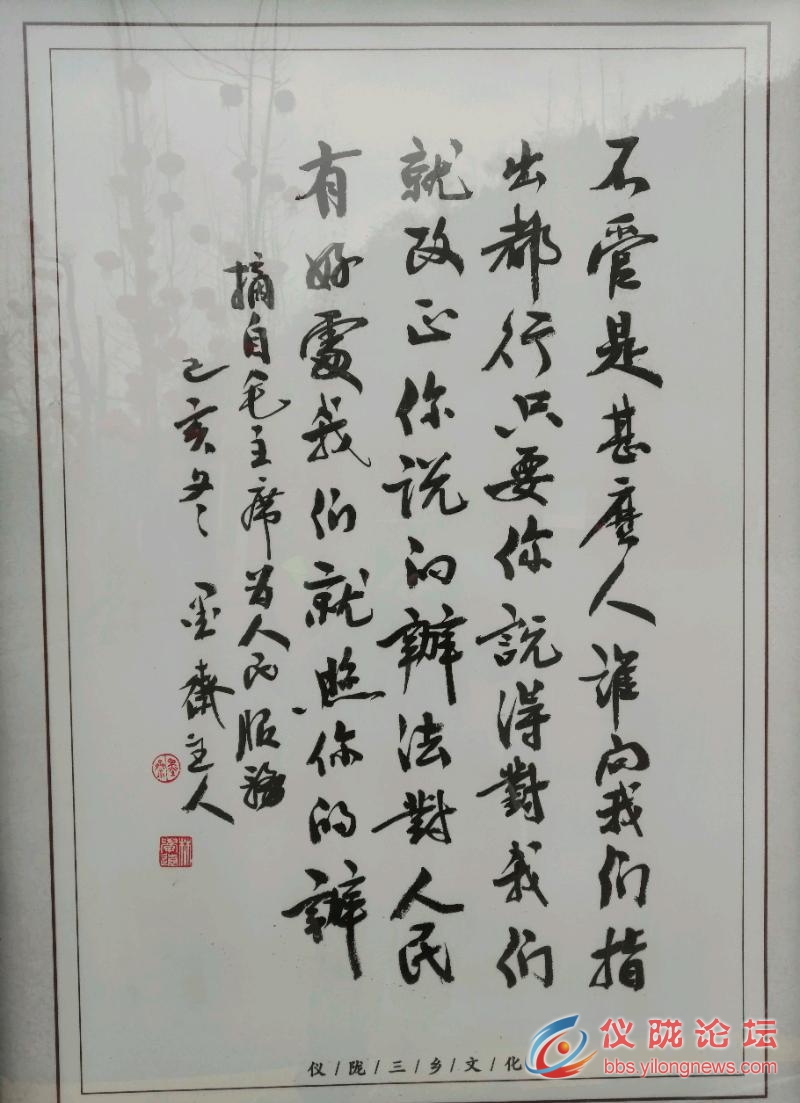 不管是甚麼人誰向我们指
出都行只要你說得對我们
就改正你说的辦法對人民
有好處我们就照你的辦
摘自毛主席为人民服務
己亥冬 墨齋主人
仪/陇/三/乡/文/化
仪陇论坛
bbs.yilongnews.com